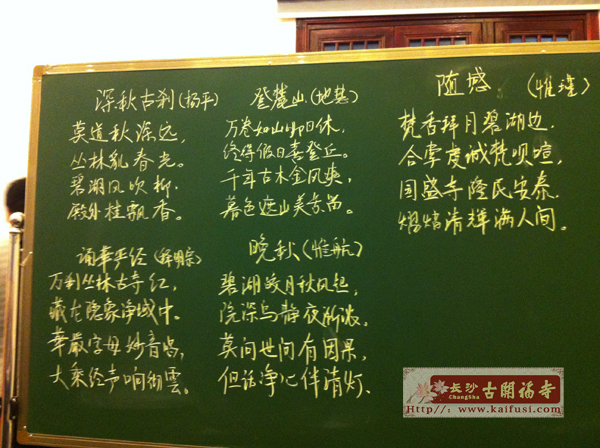 深秋古刹(杨平)
莫道秋深远，
丛林乳春光。
碧湖风吹柳，
殿外桂飘香。
登麓山(地慧)
万卷如山卯日休，
终得假日喜登丘。
千年古木金风爽，
暮色遮山美
随感 (惟瑾)
梵香拜月碧湖边，
合掌虔诚梵呗喧，
国盛寺隆民安泰，
熠熠清辉满人间。
诵华严经(释明宗)
万利丛林古寺红，
藏龙隐象净域中。
華嚴字母妙音
大乘经声响彻雲。
晚秋(惟航)
碧湖皎月秋风起，
院深鸟静夜渐浓。
莫问世间有因果，
但话净心伴清灯。
长沙 古開福寺
ChangSha
Http://www.kaifusi.com